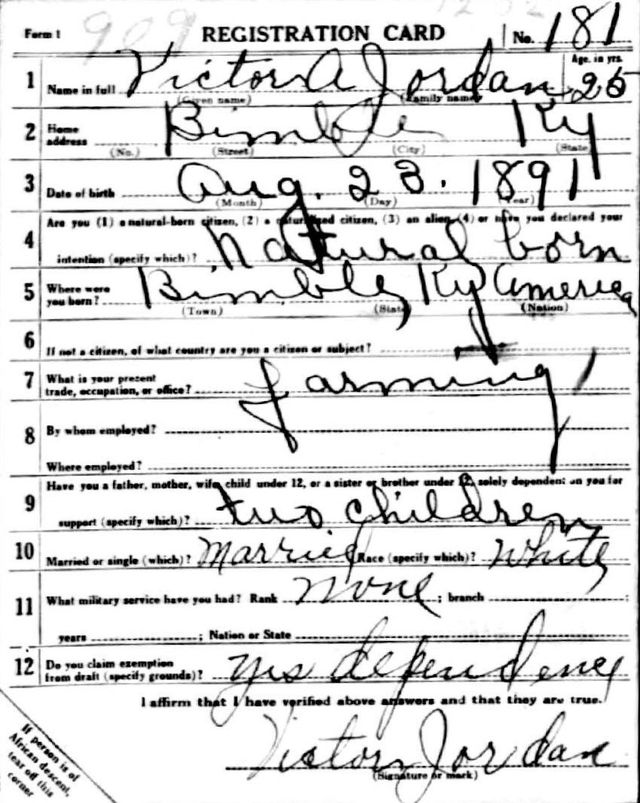 Form 1 909 REGISTRATION CARD No. 181
1 Name in full Victor A Jordan Age, in yrs. 25
(Given name) (Family name)
2 Home address Bimble Ky
(No.) (Street) (City) (State)
3 Date of birth Aug. 23. 1891
(Month) (Day) (Year)
Are you (1) a natural-born citizen, (2) a naturalized citizen, (3) an alien, (4) or have you declared your
4 intention (specify which)? Natural born
5 Where were you born? Bimble, Ky America
(Town) (State) (Nation)
6 If not a citizen, of what country are you a citizen or subject?
7 What is your present trade, occupation, or office? farming
8 By whom employed?
Where employed?
Have you a father, mother, wife, child under 12, or a sister or brother under 12, solely dependent on you for
9 support (specify which)? two children
10 Married or single (which)? Married Race (specify which)? White
11 What military service have you had? Rank None ; branch ;
years ; Nation or State
12 Do you claim exemption from draft (specify grounds)? yes dependency
I affirm that I have verified above answers and that they are true.
Victor Jordan
(Signature or mark)
If person is of
African descent,
tear off this
corner